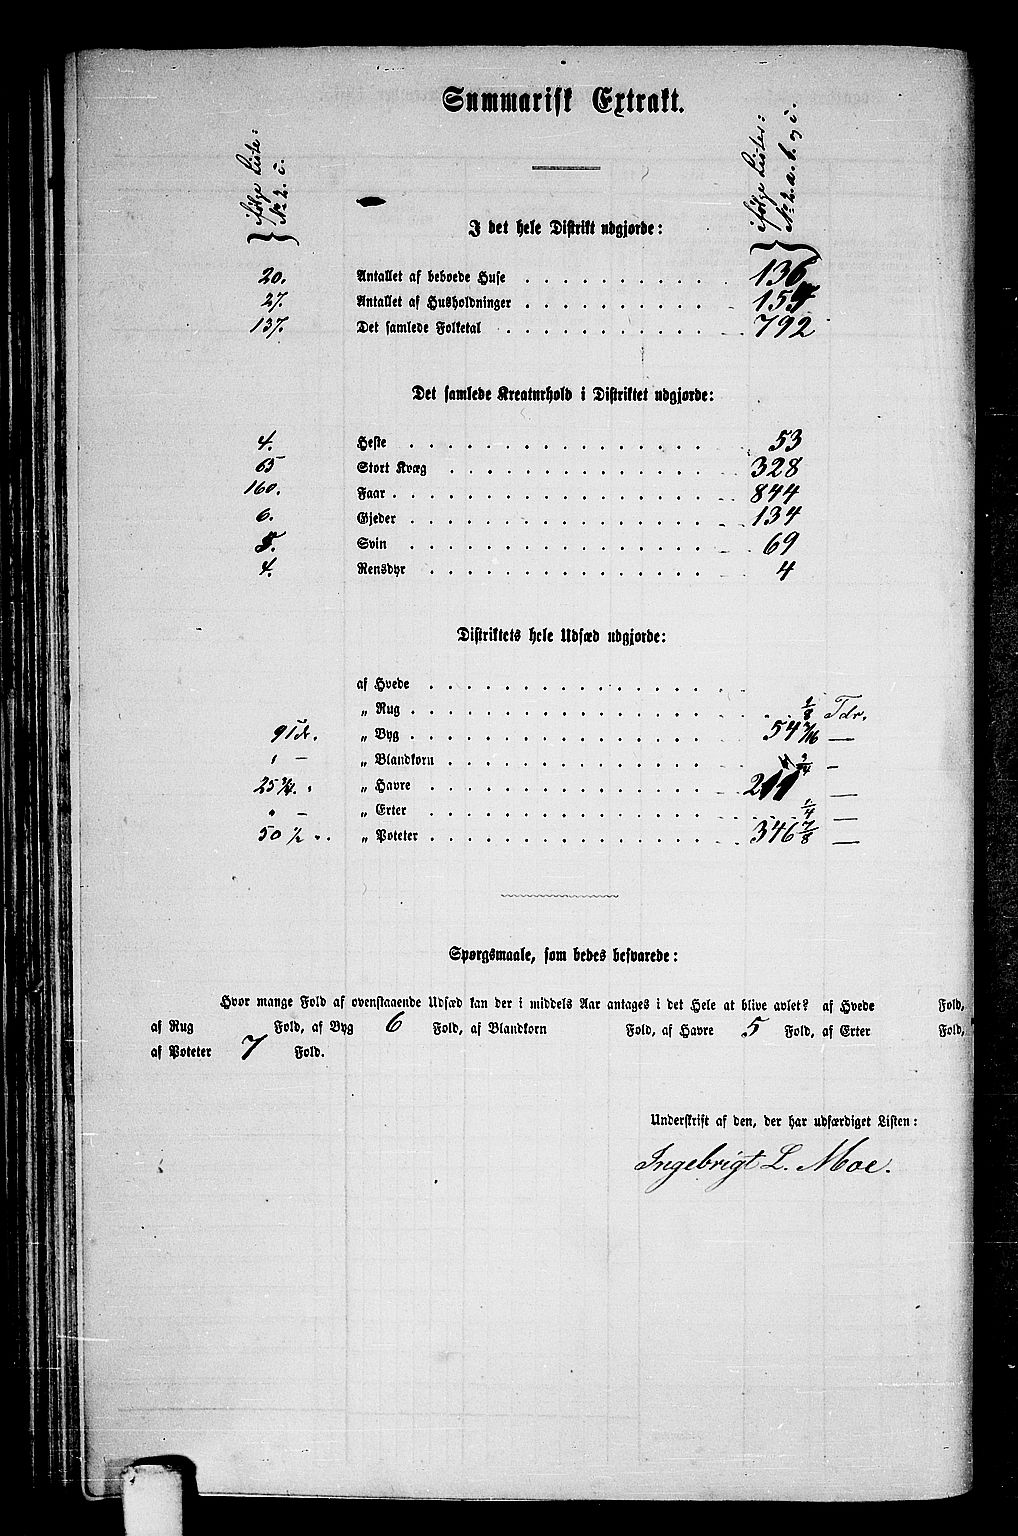 Summarisk Extrakt.
ifølge Liste:
No 2. c.
ifølge Lister:
No 2. a. b. og c.
I det hele Distrikt udgjorde:
20. Antallet af beboede Huse 136
27. Antallet af Husholdninger 157
137. Det samlede Folketal 792
Det samlede Kreaturhold i Distriktet udgjorde:
4. Heste 53
65 Stort Kvæg 328
160. Faar 844
6. Gjeder 134
Svin 69
4. Rensdyr 4
Distriktets hele Udsæd udgjorde:
af Hvede
„ Rug Tdr.
„ Byg 54 7/16 —
„ Blandkorn 3/4 —
25 3/4. „ Havre 211 —
„ Erter 1/4 —
50 1/2 „ Poteter 346 7/8 —
Spørgsmaale, som bedes besvarede:
Hvor mange Fold af ovenstaaende Udsæd kan der i middels Aar antages i det Hele at blive avlet? af Hvede Fold,
af Rug Fold, af Byg 6 Fold, af Blandkorn Fold, af Havre 5 Fold, af Erter Fold,
af Poteter 7 Fold.
Underskrift af den, der har udfærdiget Listen:
Ingebrigt L. Moe.